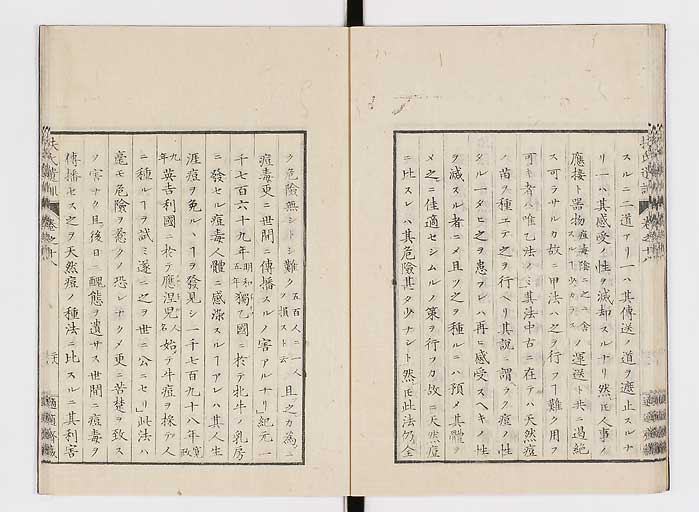 スルニ二道アリ一ハ其傳送ノ道ヲ遮止スルナ
リ一ハ其感受ノ性ヲ滅却スルナリ然𪜈人事ノ
應接ト器物ノ運送ト共ニ過絶
ス可ラサルカ故ニ甲法ハ之ヲ行フヿ難ク用フ
可キ者ハ唯乙法ノミ其法中古ニ在テハ天然痘
ノ苗ヲ種エテ之ヲ行ヘリ其説ニ謂ラク痘ノ性
タル一タヒ之ヲ患フレハ再ヒ感受スヘキノ性
ヲ滅スル者ニメ且ツ之ヲ種ルニハ預メ其體ヲ
メ之ニ佳適セシムルノ策ヲ行フカ故ニ天然痘
ニ比スレハ其危險甚タ少ナシト然𪜈此法仍全
ク危險無シトシ難ク五百人ニ一人ヲ損スト云且之カ為ニ
痘毒更ニ世間ニ傳播スルノ害アルナリ」紀元一
千七百六十九年明和五年獨乙國ニ於テ牝牛ノ乳房
ニ發セル痘毒人體ニ感染スルヿアレハ其人生
涯痘ヲ免ルヽヿヲ發見シ一千七百九十八年寛政
九年英吉利國ニ於テ應涅兒人名始テ牛痘ヲ採テ人
ニ種ルヿヲ試ミ遂ニ之ヲ世ニ公ニセリ」此法ハ
毫モ危險ヲ惹クノ恐レナクメ更ニ苦楚ヲ致ス
ノ害ナク且後日ニ醜態ヲ遺サス世間ニ痘毒ヲ
傳播セス之ヲ天然痘ノ種法ニ比スルニ其利害
扶氏遺訓
卷之十八